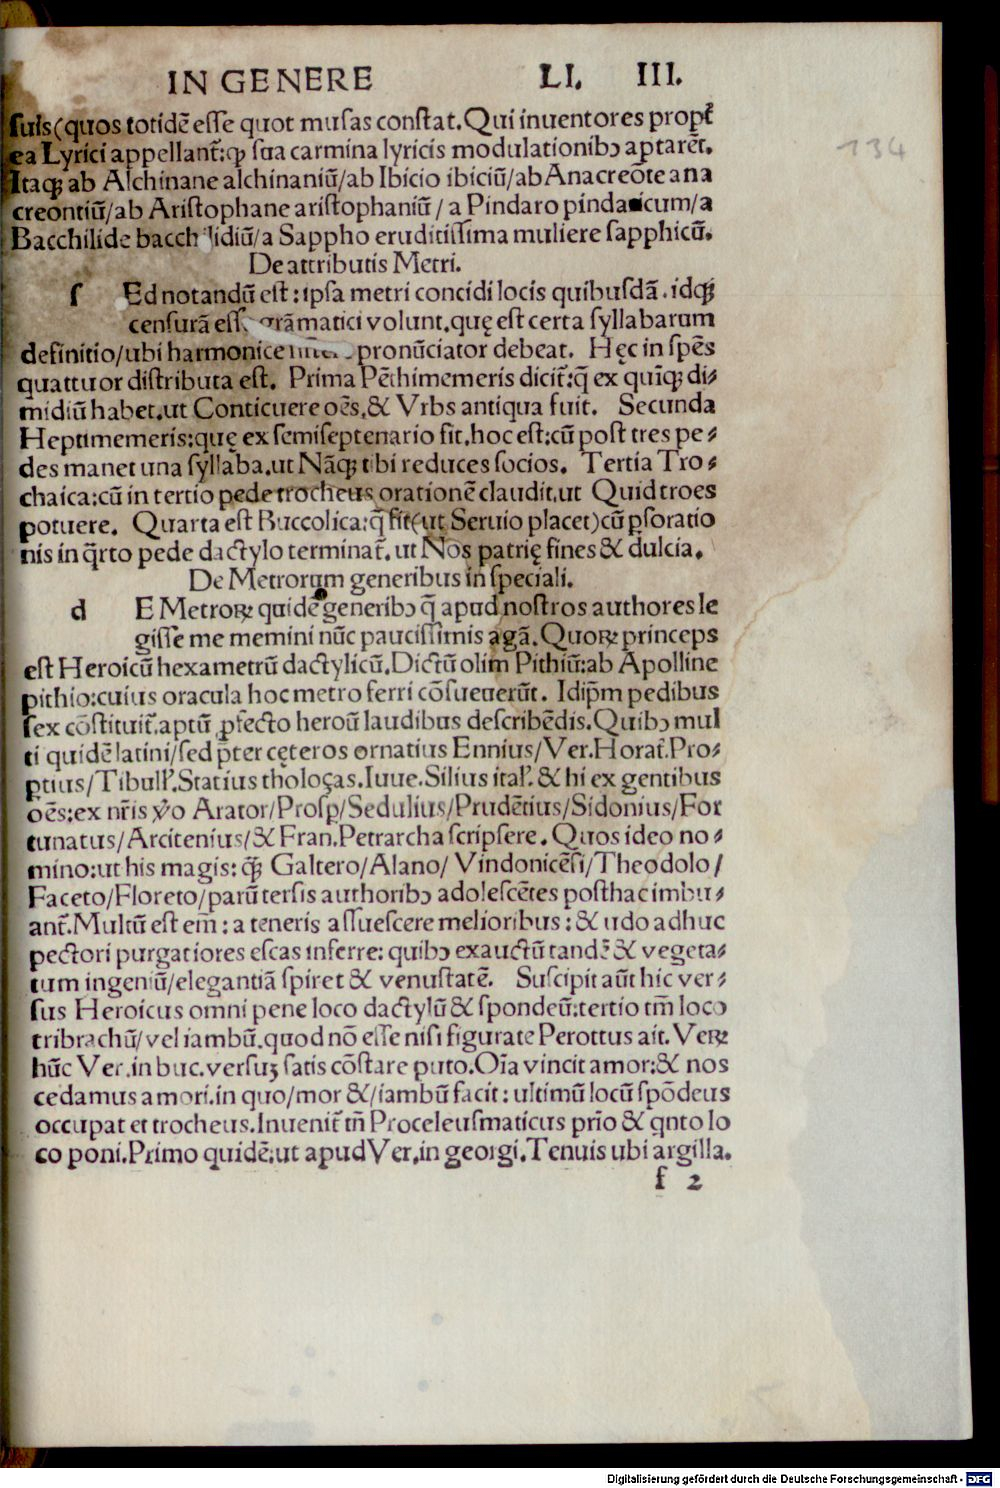 IN GENERE LI. III.
134
suis(quos totidē esse quot musas constat.Qui inuentores propt̄
ea Lyrici appellant̄:ꝙ sua carmina lyricis modulationibꝫ aptarēt.
Itaqꝫ ab Alchinane alchinaniū/ab Ibicio ibiciū/ab Anacreōte ana
creontiū/ab Aristophane aristophaniū/a Pindaro pindaricum/a
Bacchilide bacchilidiū/a Sappho eruditissima muliere sapphicū.
De attributis Metri.
ſ Ed notandū est:ipsa metri concidi locis quibusdā.idqꝫ
censurā grāmatici volunt.quę est certa syllabarum
definitio/ubi harmonice pronūciator debeat. Hęc in spēs
quattuor distributa est. Prima Pēthimemeris dicit̄:q̄ ex quīqꝫ di⸗
midiū habet.ut Conticuere oēs.& Vrbs antiqua fuit. Secunda
Heptimemeris:quę ex semiseptenario fit.hoc est:cū post tres pe⸗
des manet una syllaba.ut Nāqꝫ tibi reduces socios. Tertia Tro⸗
chaica:cū in tertio pede trocheus orationē claudit.ut Quid troes
potuere. Quarta est Buccolica:q̄ fit(ut Seruio placet)cū ꝑsoratio
nis in q̄rto pede dactylo terminat̄.ut Nos patrię fines & dulcia.
De Metrorum generibus in speciali.
d E Metroꝝ quidē generibꝫ q̄ apud nostros authores le
gisse me memini nūc paucissimis agā.Quoꝝ princeps
est Heroicū hexametrū dactylicū.Dictū olim Pithiū:ab Apolline
pithio:cuius oracula hoc metro ferri cōsueuerūt. Idip̄m pedibus
sex cōstituit̄.aptū ꝓfecto heroū laudibus describēdis.Quibꝫ mul
ti quidē latini/sed p̄ter cęteros ornatius Ennius/Ver.Horat̄.Pro⸗
ꝑtius/Tibull⁹.Statius tholoças.Iuue.Silius ital⁹.& hi ex gentibus
oēs:ex nr̄is v̊o Arator/Prosꝑ/Sedulius/Prudētius/Sidonius/For
tunatus/Arcitenius/& Fran.Petrarcha scripsere.Quos ideo no⸗
mino:ut his magis:q̄ꝫ Galtero/Alano/Vindonicēsi/Theodolo/
Faceto/Floreto/parū tersis authoribꝫ adolescētes posthac imbu⸗
ant̄.Multū est em̄:a teneris assuescere melioribus:& udo adhuc
pectori purgatiores escas inferre:quibꝫ exauctū tandē & vegeta⸗
tum ingeniū/elegantiā spiret & venustatē. Suscipit aūt hic ver⸗
sus Heroicus omni pene loco dactylū & spondeū:tertio tm̄ loco
tribrachū/vel iambū.quod nō esse nisi figurate Perottus ait.Veꝝ
hūc Ver.in buc.versuꝫ satis cōstare puto.Oīa vincit amor:& nos
cedamus amori.in quo/mor &/iambū facit:ultimū locū spōdeus
occupat et trocheus.Inuenit̄ tn̄ Proceleusmaticus prīo & qnto lo
co poni.Primo quidē:ut apud Ver.in georgi.Tenuis ubi argilla.
f 2
Digitalisierung gefördert durch die Deutsche Forschungsgemeinschaft - DFG